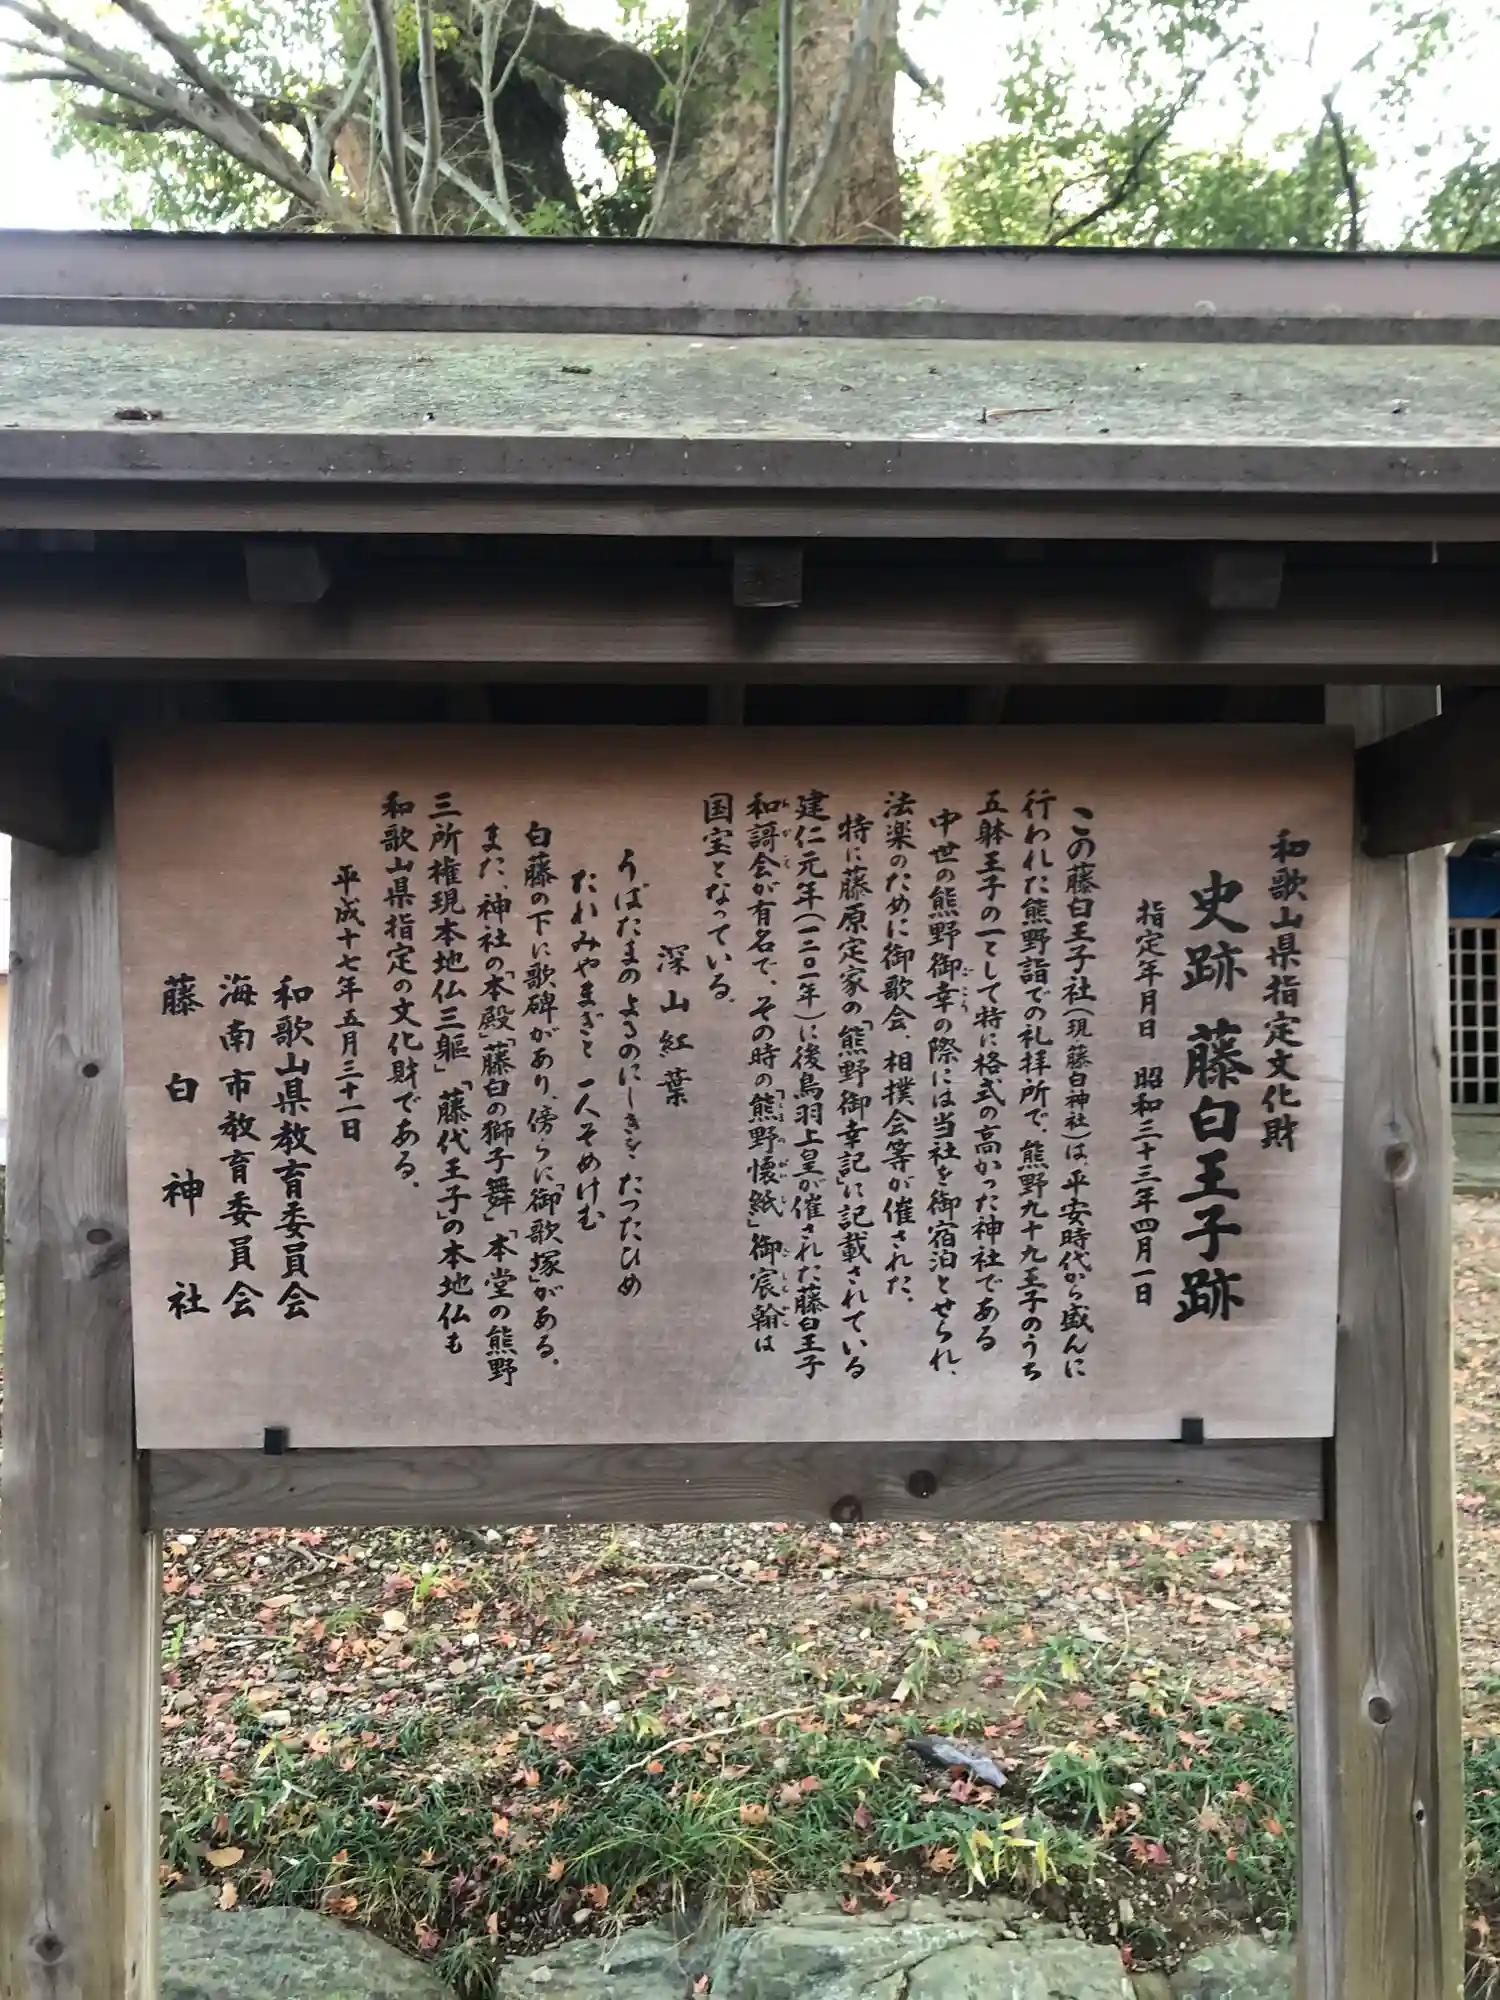 和歌山県指定文化財
史跡 藤白王子跡
指定年月日 昭和三十三年四月一日
この藤白王子社(現藤白神社)は、平安時代から盛んに
行われた熊野詣での礼拝所で、熊野九十九王子のうち
五躰王子の一として特に格式の高かった神社である
中世の熊野御幸の際には当社を御宿泊とせられ、
法楽のために御歌会、相撲会等が催された。
特に藤原定家の「熊野御幸記」に記載されている
建仁元年(一二〇一年)に後鳥羽上皇が催された藤白王子
和謌会が有名で、その時の「熊野懐紙」御宸翰は
国宝となっている。
深山紅葉
うばたまのよるのにしきをたつたひめ
たれみやまぎと一人そめけむ
白藤の下に歌碑があり、傍らに「御歌塚」がある。
また、神社の「本殿」「藤白の獅子舞」「本堂の熊野
三所権現本地仏三躯」「藤代王子」の本地仏も
和歌山県指定の文化財である。
平成十七年五月三十一日
和歌山県教育委員会
海南市教育委員会
藤白神社